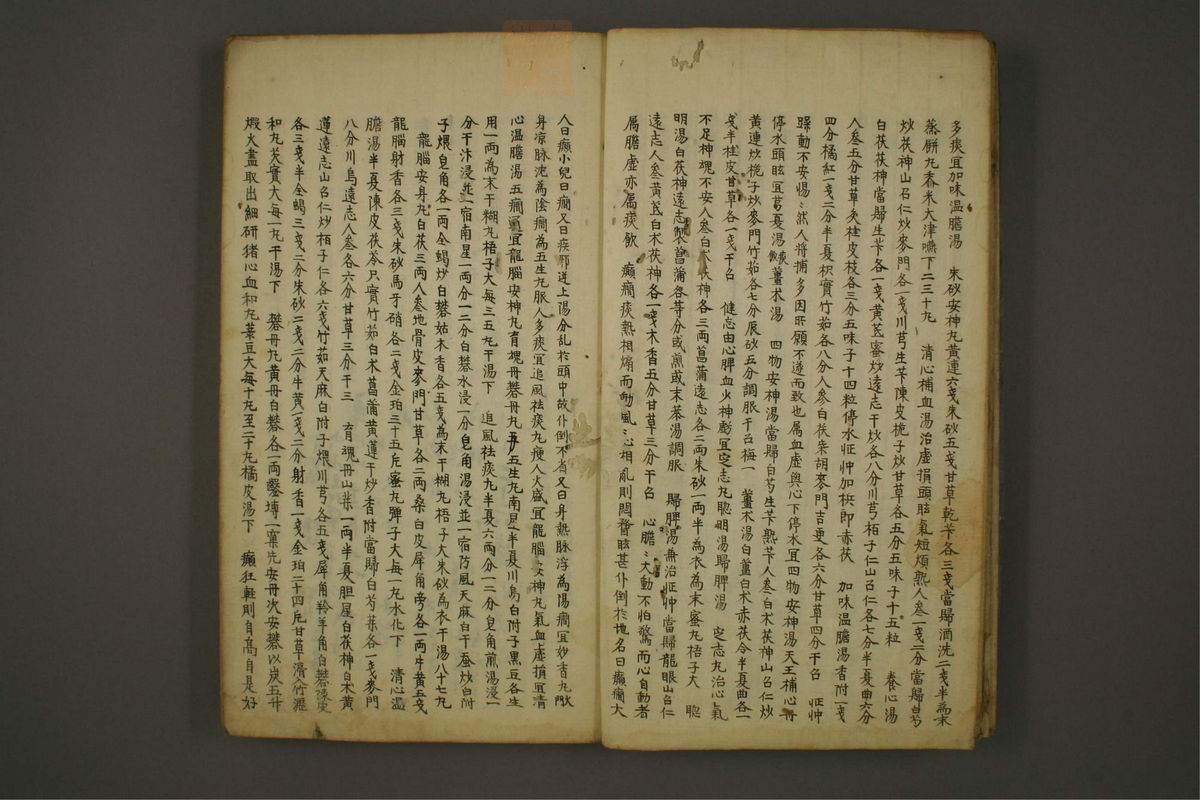 多痰宜加味温膽湯 朱砂安神丸黄連六戔朱砂五戔甘草乾芐各三戔當歸酒洗二戔半為末
蒸餅丸黍米大津嚥下二三十丸 清心補血湯治虛損頭眩氣短煩熱人參一戔二分當歸白芍
炒茯神山召仁炒麥門各一戔川芎生芐陳皮梔子炒甘草各五分五味子十五粒 養心湯
白茯茯神當歸生芐各一戔黄芪蜜炒遠志干炒各八分川芎栢子仁山召仁各七分半夏曲六分
人參五分甘草灸桂皮枝各三分五味子十四粒停水怔忡加梹郎赤茯 加味温膽湯香附一戔
四分橘紅一戔二分半夏枳實竹茹各八分人參白茯柴胡麥門吉更各六分甘草四分干召 怔忡
躁動不安惕〻然人將捕多因所願不遂而致也属血虛與心下停水宜四物安神湯天王補心丹
停水頭眩宜芎夏湯痰薑朮湯 四物安神湯當歸白芍生芐熟芐人參白朮茯神山召仁炒
黄連炒梔子炒麥門竹茹各七分辰砂五分調服干召梅一 薑朮湯白薑白朮赤茯令半夏曲各一
戔半桂皮甘草各一戔干召 健忘由心脾血少神虧宜定志丸聰明湯歸脾湯 定志丸治心氣
不足神魂不安人參白茯茯神各三兩菖蒲遠志各二兩朱砂一兩半為衣為末蜜丸梧子大 聰
明湯白茯神遠志製菖蒲各等分或煎或末茶湯調服 歸脾湯兼治怔忡當歸龍眼山召仁
遠志人參黄芪白朮茯神各一戔木香五分甘草三分干召 心膽〻大動不怕驚而心自動者
属膽虛亦属痰飲 癲癎痰熱相煽而動風〻心相亂則悶瞀眩甚仆倒於地名曰癲癎大
人曰癲小兒曰癎又曰疾邪逆上陽分乱於頭中故仆倒不省又曰身熱脉浮為陽癎宜妙香丸
身凉脉沈為陰癎為五生丸肥人多痰宜追風祛痰丸瘦人火盛宜龍腦安神丸氣血虛損宜清
心温膽湯五癎宜龍腦安神丸育魂丹礬丹丸 五生丸南星半夏川烏白附子黒豆各生
用一兩為末干糊丸梧子大每三五丸干湯下 追風祛痰丸半夏六兩分一二分皂角煎湯浸一
分干汁浸並一宿南星一兩分一二分白礬水浸一分皂角湯浸並一宿防風天麻白干蚕炒白附
子煨皂角各一兩全蝎炒白礬姑木香各五戔為末干糊丸梧子大朱砂為衣干湯八十七丸
龍腦安身丸白茯三兩人參地骨皮麥門甘草各二兩桑白皮犀角旁各一兩牛黄五戔
龍腦射香各三戔朱砂馬牙硝各二戔金珀三十五斤蜜丸彈子大每一丸水化下 清心温
膽湯半夏陳皮茯苓只實竹茹白朮菖蒲黄蓮干炒香附當歸白芍茶各一戔麥門
八分川烏遠志人參各六分甘草三分干三 育魂丹山茶一兩半夏胆星白茯神白朮黄
蓮遠志山召仁炒栢子仁各六戔竹茹天麻白附子煨川芎各五戔犀角羚羊角白礬陳皮
各三戔半全蝎三戔二分朱砂二戔二分牛黄一戔二分射香一戔金珀二十四斤甘草膏入竹瀝
和丸芡實大每一丸干湯下 礬丹丸黄丹白礬各一兩鑿塼一窠先安丹次安礬以炭五斤
煅火盡取出細研猪心血和丸菉豆大每十丸至二十丸橘皮湯下 癲狂輕則自高自是好